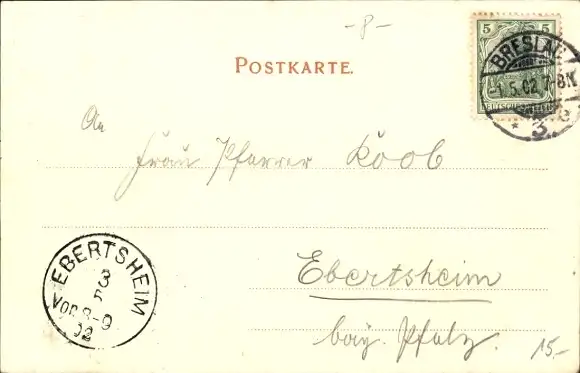 -8-
POSTKARTE.
5 5
BRESLAU
-1.5.02.7-8N
* 3. e
An
Frau Pfarrer Koob
Ebertsheim
bay. Pfalz.
15.-
EBERTSHEIM
3
5
VOR 8-9
02